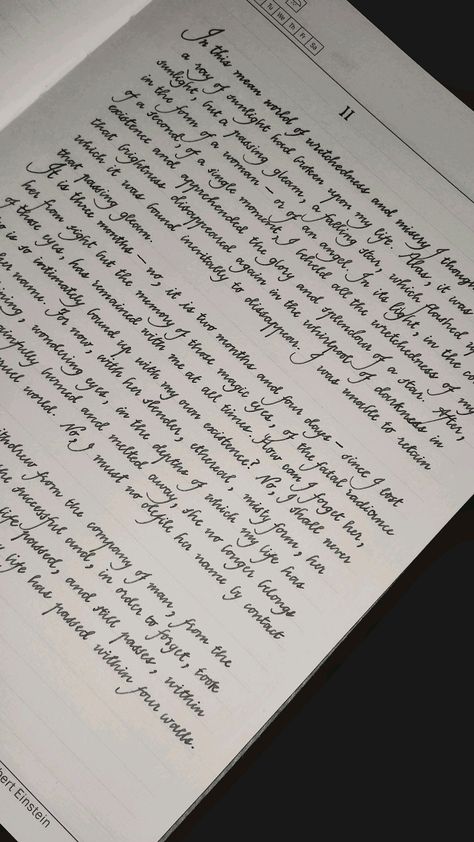 Tu We Th Fr Sa
11
In this mean world of wretchedness and misery I thought
a ray of sunlight had broken upon my life. Alas, it was
sunlight, but a passing gleam, a falling star, which flashed
in the form of a woman – or of an angel. In its light, in the
of a second, of a single moment, I beheld all the wretchedness of my
existence and apprehended the glory and splendour of a star. After,
that brightness disappeared again in the whirlpool of darkness in
which it was bound inevitably to disappear. I was unable to retain
that passing gleam.
It is three months – no, it is two months and four days – since I lost
her from sight but the memory of those magic eyes, of the fatal radiance
of those eyes, has remained with me at all times. How can I forget her,
who is so intimately bound up with my own existence? No, I shall never
her name. For now, with her slender, ethereal, misty form, her
wondering eyes, in the depths of which my life has
burned and melted away, she no longer belongs
world. No, I must no defile her name by contact
withdrew from the company of man, from the
the successful and, in order to forget, took
life passed, and still passes, within
life has passed within four walls.
Einstein